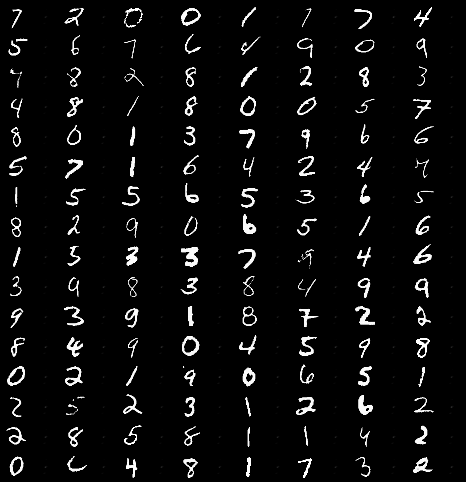 7 2 0 0 1 1 7 4
5 6 7 6 4 9 0 9
4 8 2 8 1 2 8 3
4 8 1 8 0 0 5 7
8 0 1 3 7 9 6 6
5 7 1 6 4 2 4 4
1 5 5 6 5 3 6 5
8 2 9 0 6 5 1 6
1 5 3 3 7 9 4 6
3 9 8 3 8 4 9 9
9 3 9 1 8 7 2 2
8 4 9 0 4 5 9 8
0 2 1 9 0 6 5 1
2 5 2 3 1 2 6 2
2 8 5 8 1 1 4 2
0 6 4 8 1 7 3 2